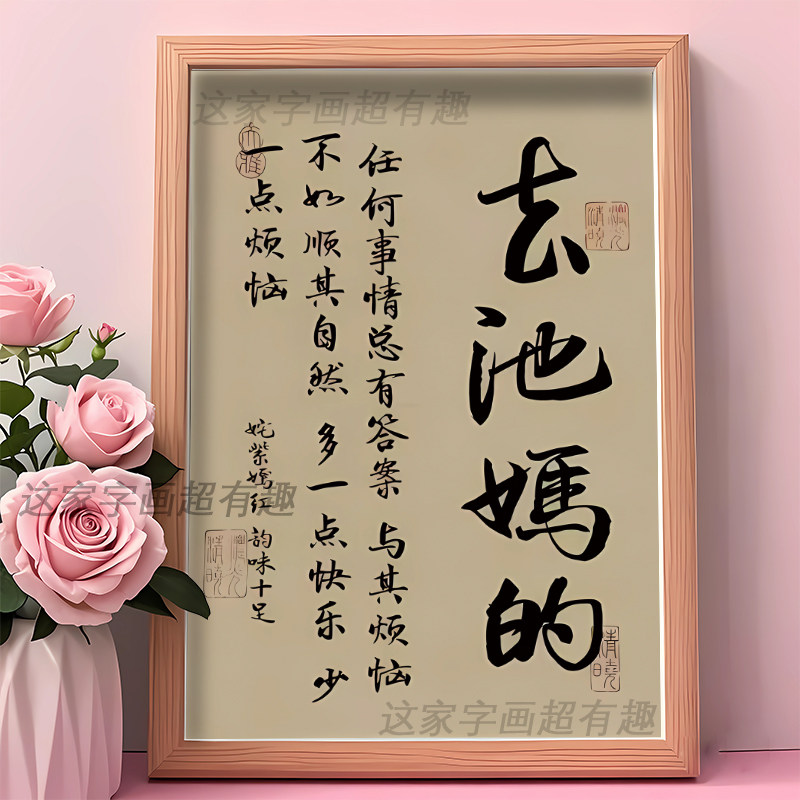 这家字画超有趣
去池媽的
任何事情总有答案 与其烦恼
不如顺其自然 多一点快乐 少
一点烦恼
姹紫嫣红 韵味十足
这家字画超有趣
这家字画超有趣